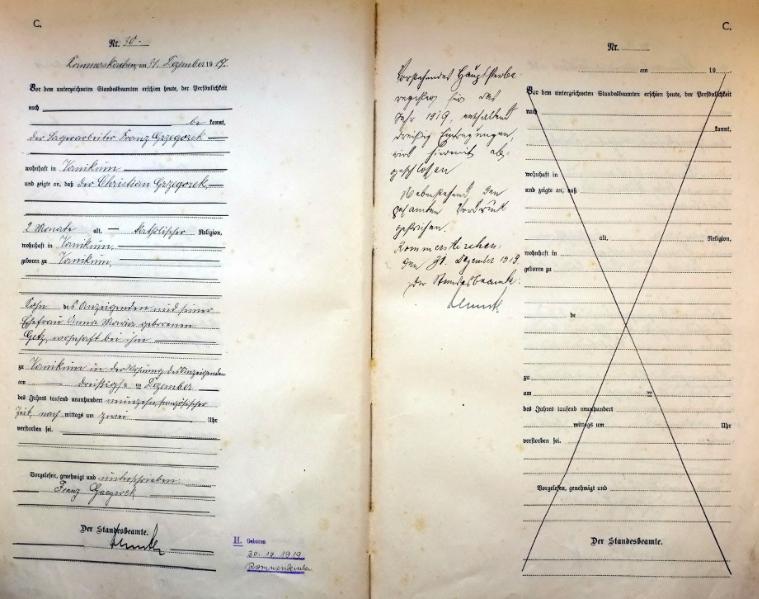 C.
Nr. 30.
Rommerskirchen, am 31. Dezember 1919.
Vor dem unterzeichneten Standesbeamten erschien heute, der Persönlichkeit
nach
be kannt,
der Lagerarbeiter Franz Grzegorek
wohnhaft in Vanikum
und zeigte an, daß der Christian Grzegorek,
2 Monate alt, katholischer Religion,
wohnhaft in Vanikum,
geboren zu Vanikum,
Sohn des Anzeigenden und seiner
Ehefrau Anna Maria geborenen
Getz, wohnhaft bei ihm
zu Vanikum in der Wohnung des Anzeigenden
am dreißigsten Dezember
des Jahres tausend neunhundert neunzehn, französischer
Zeit, nach mittags um zwei Uhr
verstorben sei.
Vorgelesen, genehmigt und unterschrieben
Franz Grzegorek
Der Standesbeamte.
II. Geboren
1919
Rommerskirchen
Vorstehendes Hauptsterbe-
register für das
Jahr 1919, enthaltend
dreißig Eintragungen,
wird hiermit ab-
geschlossen
Nebenstehend den
gesamten Vordruck
gestrichen.
Rommerskirchen
den 31. Dezember 1919
Der Standesbeamte.
C.
Nr.
am 19
Vor dem unterzeichneten Standesbeamten erschien heute, der Persönlichkeit
nach
kannt,
wohnhaft in
und zeigte an, daß
alt, Religion,
wohnhaft in
geboren zu
de
zu
am te
des Jahres tausend neunhundert
mittags um Uhr
verstorben sei.
Vorgelesen, genehmigt und
Der Standesbeamte.